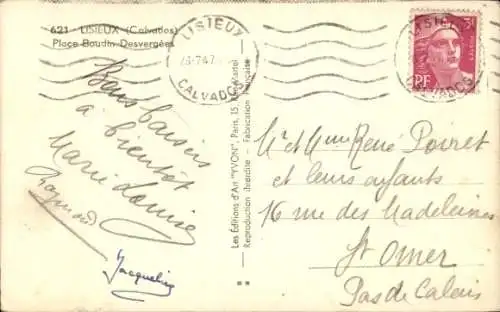 621 - LISIEUX (Calvados)
Place Boudin Desvergées
LISIEUX
CALVADOS
LISIEUX
CALVADOS
3F
RF
Bons baisers
à bientôt
Marie Louise
Raymond
Jacqueline
Les Éditions d'Art "YVON", Paris, 15, Rue Martel
Reproduction interdite - Fabrication Française
Mr et Mme René Poiret
et leurs enfants
16 rue des Madeleines
St Omer
Pas de Calais